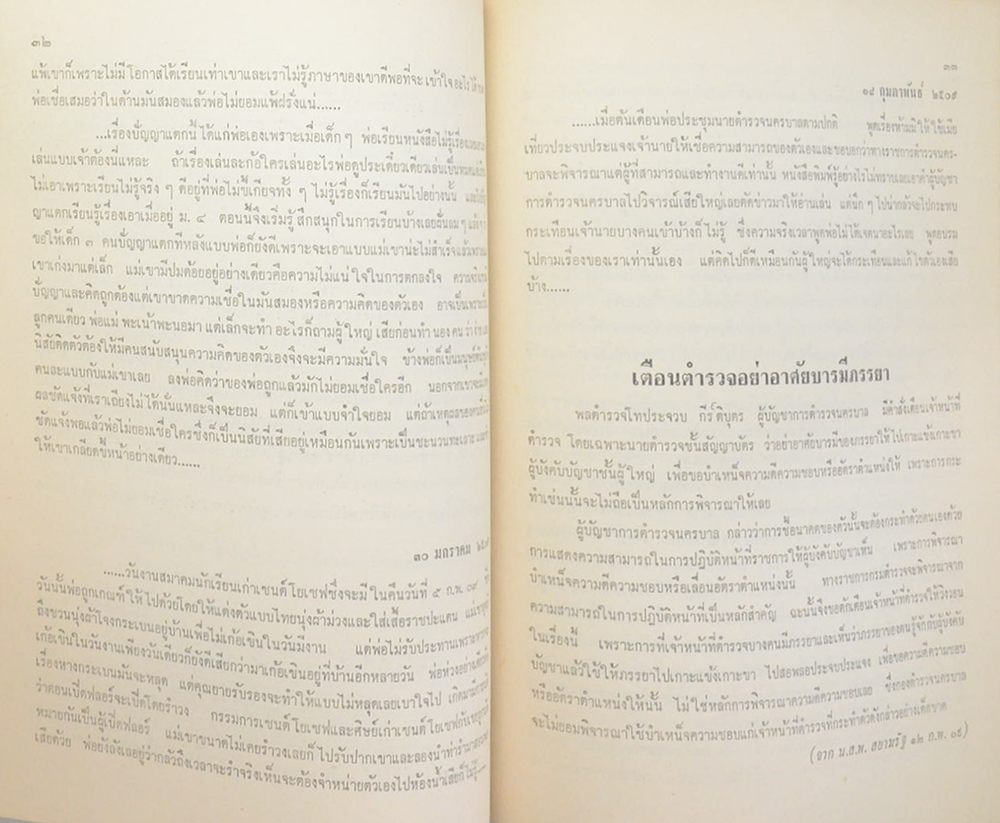 ๓๒
แพ้เขาก็เพราะไม่มีโอกาสได้เรียนเท่าเขาและเราไม่รู้ภาษาของเขาดีพอที่จะเข้าใจอะไรได้
พ่อเชื่อเสมอว่าในด้านมันสมองแล้วพ่อไม่ยอมแพ้ฝรั่งแน่......
...เรื่องปัญญาแตกนี้ได้แก่พ่อเองเพราะเมื่อเด็ก ๆ พ่อเรียนหนังสือไม่รู้เรื่อง
เล่นแบบเจ้าต้องนี่แหละ ถ้าเรื่องเล่นละก้อใครเล่นอะไรพ่อดูประเดี๋ยวเดียวเล่นเป็น
ไม่เอาเพราะเรียนไม่รู้จริง ๆ ดีอยู่ที่พ่อไม่ขี้เกียจทั้ง ๆ ไม่รู้เรื่องก็เรียนมันไปอย่างนั้น
ญาแตกเรียนรู้เรื่องเอาเมื่ออยู่ ม. ๔ ตอนนี้จึงเริ่มรู้สึกสนุกในการเรียนบ้างเลยผันลม ๆ แล้ง ๆ
ขอให้เด็ก ๓ คนปัญญาแตกทีหลังแบบพ่อก็ยังดีเพราะจะเอาแบบแม่เขาน่ะไม่สำเร็จแล้ว
เขาเก่งมาแต่เล็ก แม่เขามีปมด้อยอยู่อย่างเดียวคือความไม่แน่ใจในการตกลงใจ
ปัญญาและคิดถูกต้องแต่เขาขาดความเชื่อในมันสมองหรือความคิดของตัวเอง อาจเป็นเพราะ
ลูกคนเดียว พ่อแม่ พะเน้าพะนอมา แต่เล็กจะทำ อะไรก็ถามผู้ใหญ่ เสียก่อนทำ
นิสัยติดตัวต้องให้มีคนสนับสนุนความคิดของตัวเองจึงจะมีความมั่นใจ ข้างพ่อก็เป็นมนุษย์
คนละแบบกับแม่เขาเลย ลงพ่อคิดว่าของพ่อถูกแล้วมักไม่ยอมเชื่อใครอีก นอกจากเขาจะ
ผลชัดแจ้งที่เราเถียงไม่ได้นั่นแหละจึงจะยอม แต่ก็เข้าแบบจำใจยอม แต่ถ้าเหตุผลของ
ชัดแจ้งพอแล้วพ่อไม่ยอมเชื่อใครซึ่งก็เป็นนิสัยที่เสียอยู่เหมือนกันเพราะเป็นชะนวนทะเลาะ
ให้เขาเกลียดขี้หน้าอย่างเดียว......
๓๐ มกราคม
......วันงานสมาคมนักเรียนเก่าเซนต์โยเซฟซึ่งจะมีในคืนวันที่ ๕ ก.พ. ๐๙
วันนั้นพ่อถูกเกณฑ์ให้ไปด้วยโดยให้แต่งตัวแบบไทยนุ่งผ้าม่วงและใส่เสื้อราชปะแตน
ถึงชวนนุ่งผ้าโจงกระเบนอยู่บ้านเพื่อไม่เก้อเขินในวันมีงาน แต่พ่อไม่รับประทานเพราะ
เก้อเขินในวันงานเพียงวันเดียวก็ยังดีเสียกว่ามาเก้อเขินอยู่ที่บ้านอีกหลายวัน พ่อห่วงอย่าง
เรื่องหางกระเบนมันจะหลุด แต่คุณยายรับรองจะทำให้แบบไม่หลุดเลยเบาใจไป
ว่าตอนเปิดฟลอร์จะเปิดโดยรำวง กรรมการเซนต์โยเซฟและศิษย์เก่าเซนต์โยเซฟ
หมายกันเป็นผู้เปิดฟลอร์ แม่เขาขนาดไม่เคยรำวงเลยก็ไปรับปากเขาและลองนำท่ารำมา
เสียด้วย พ่อยังลังเลอยู่ว่ากลัวถึงเวลาจะรำจริงเห็นจะต้องจำหน่ายตัวเองไปห้องน้ำเสีย
๓๓
๑๔ กุมภาพันธ์ ๒๕๐๙
......เมื่อต้นเดือนพ่อประชุมนายตำรวจนครบาลตามปกติ พูดเรื่องห้ามมิให้ใช้เมีย
เที่ยวประจบประแจงเจ้านายให้เชื่อความสามารถของตัวเองและขอบอกว่าทางราชการตำรวจนคร-
บาลจะพิจารณาแต่ผู้ที่สามารถและทำงานดีเท่านั้น หนังสือพิมพ์รู้อย่างไรไม่ทราบเลยเอาคำผู้บัญชา
การตำรวจนครบาลไปวิจารณ์เสียใหญ่เลยตัดข่าวมาให้อ่านเล่น แต่นึก ๆ ไปน่ากลัวจะไปกระทบ
กระเทือนเจ้านายบางคนเข้าบ้างก็ไม่รู้ ซึ่งความจริงเวลาพูดพ่อไม่ได้เจตนาอะไรเลย พูดอบรม
ไปตามเรื่องของเราเท่านั้นเอง แต่คิดไปก็ดีเหมือนกันผู้ใหญ่จะได้กระเทือนและแก้ไขตัวเองเสีย
บ้าง......
เตือนตำรวจอย่าอาศัยบารมีภรรยา
พลตำรวจโทประจวบ กีร์ติบุตร ผู้บัญชาการตำรวจนครบาล มีคำสั่งเตือนเจ้าหน้าที่
ตำรวจ โดยเฉพาะนายตำรวจชั้นสัญญาบัตร ว่าอย่าอาศัยบารมีของภรรยาให้ไปเกาะแข้งเกาะขา
ผู้บังคับบัญชาชั้นผู้ใหญ่ เพื่อขอบำเหน็จความดีความชอบหรืออัตราตำแหน่งให้ เพราะการกระ
ทำเช่นนั้นจะไม่ถือเป็นหลักการพิจารณาให้เลย
ผู้บัญชาการตำรวจนครบาล กล่าวว่าการชี้อนาคตของตัวนั้นจะต้องกระทำด้วยตนเองด้วย
การแสดงความสามารถในการปฏิบัติหน้าที่ราชการให้ผู้บังคับบัญชาเห็น เพราะการพิจารณา
บำเหน็จความดีความชอบหรือเลื่อนอัตราตำแหน่งนั้น ทางราชการกรมตำรวจจะพิจารณาจาก
ความสามารถในการปฏิบัติหน้าที่เป็นหลักสำคัญ ฉะนั้นจึงขอตักเตือนเจ้าหน้าที่ตำรวจให้วังวอน
ในเรื่องนี้ เพราะการที่เจ้าหน้าที่ตำรวจบางคนมีภรรยาและเห็นว่าภรรยาของตนรู้จักกับผู้บังคับ
บัญชาแล้วใช้ให้ภรรยาไปเกาะแข้งเกาะขา ไปสอพลอประจบประแจง เพื่อขอความดีความชอบ
หรืออัตราตำแหน่งให้นั้น ไม่ใช่หลักการพิจารณาความดีความชอบเลย ซึ่งกองตำรวจนครบาล
จะไม่ยอมพิจารณาใช้บำเหน็จความชอบแก่เจ้าหน้าที่ตำรวจที่กระทำตัวดังกล่าวอย่างเด็ดขาด
(จาก น.ส.พ. สยามรัฐ ๑๒ ก.พ. ๐๙)